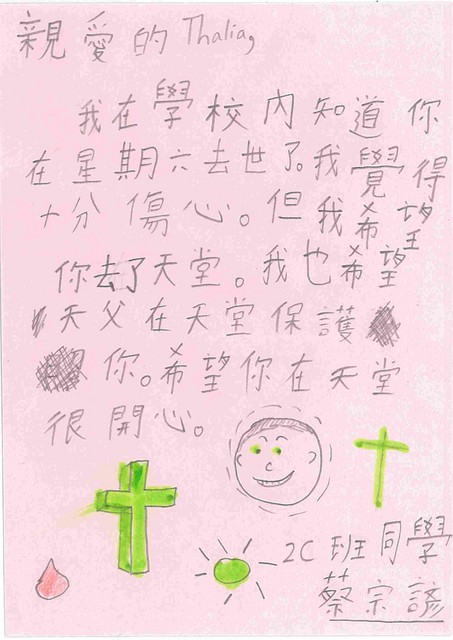 親愛的 Thalia,
我在學校內知道你
在星期六去世了。我覺得
十分傷心。但我希望
你去了天堂。我也希望
天父在天堂保護
你。希望你在天堂
很開心。
2C 班同學
蔡宗諺